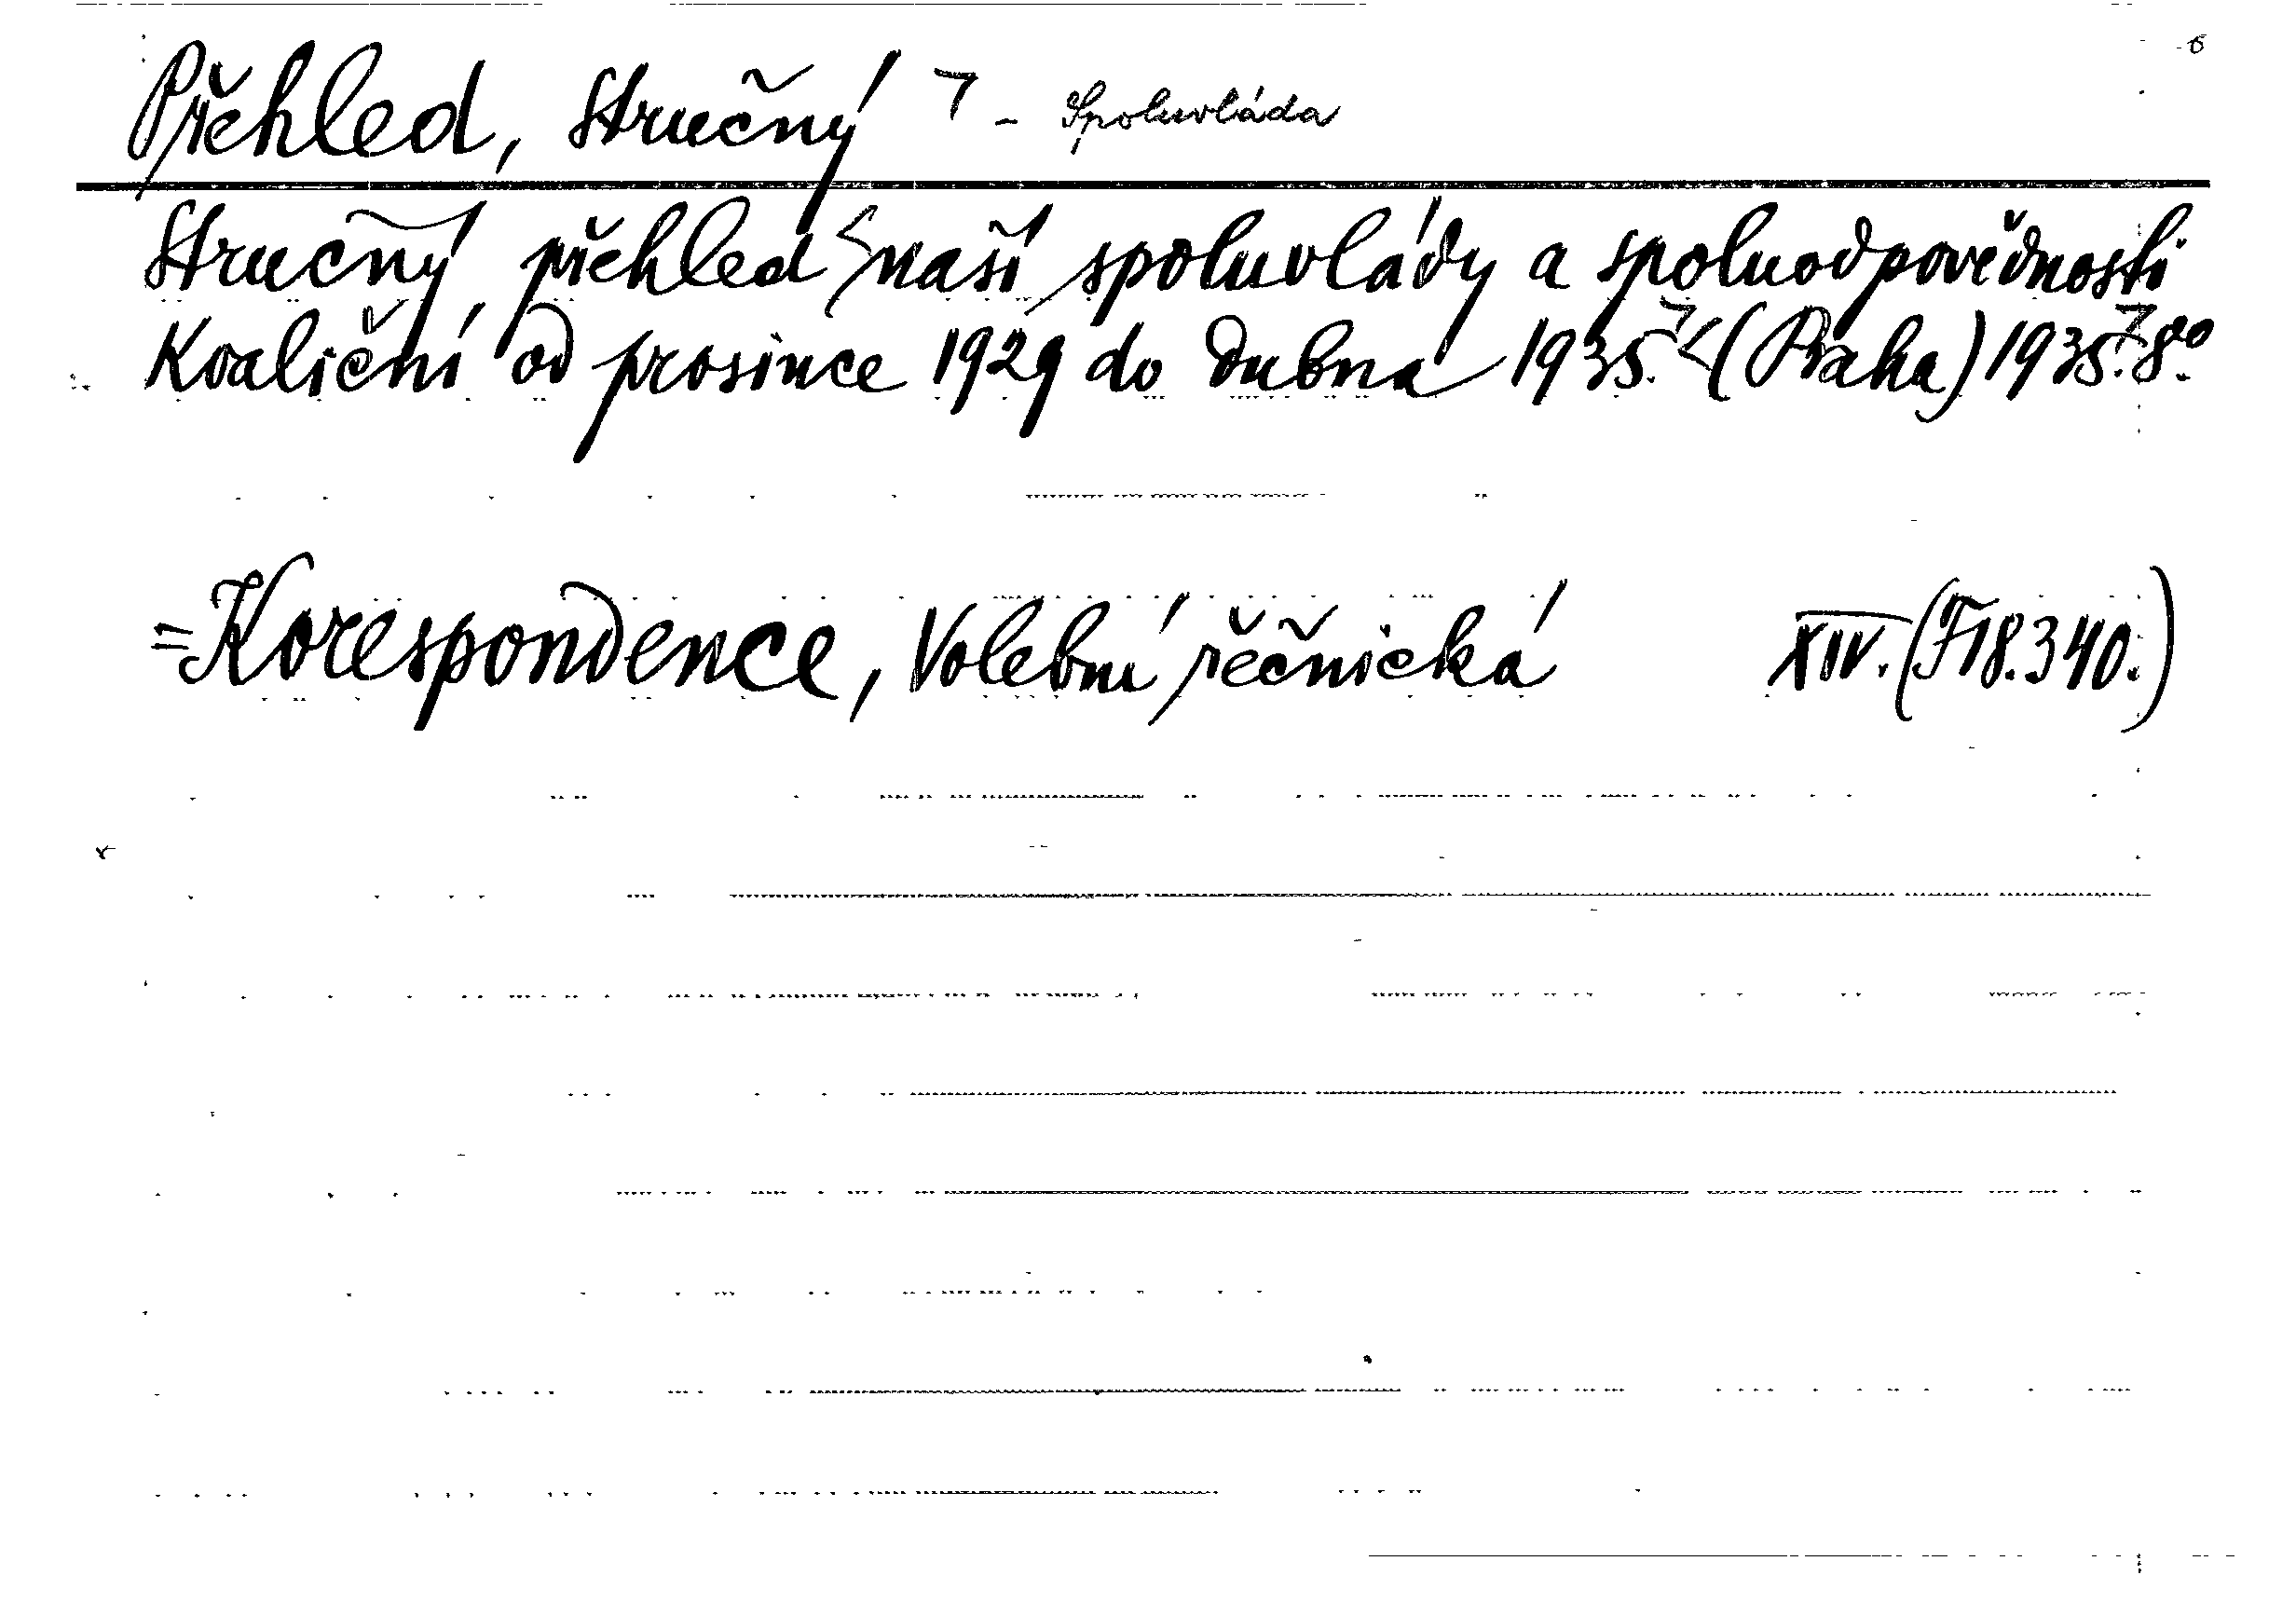 6
Přehled, Stručný - Spoluvláda
Stručný přehled naší spoluvlády a spoluodpovědnosti
Koaliční od prosince 1929 do dubna 1935. (Praha) 1935. 8°.
=Korespondence, Volební řečnická XIV. (F18.340.)